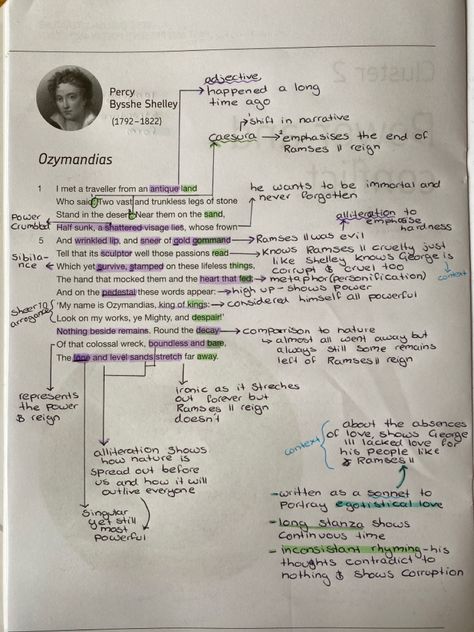 Cluster 2
Percy
Bysshe Shelley
(1792–1822)
adjective
happened a long
time ago
shift in narrative
caesura → emphasises the end of
Ramses II reign
Ozymandias
he wants to be immortal and
never forgotten
1 I met a traveller from an antique land
Who said: Two vast and trunkless legs of stone
Stand in the desert. Near them on the sand,
Half sunk, a shattered visage lies, whose frown
5 And wrinkled lip, and sneer of cold command
Tell that its sculptor well those passions read
Which yet survive, stamped on these lifeless things,
The hand that mocked them and the heart that fed:
And on the pedestal these words appear:
10 'My name is Ozymandias, king of kings:
Look on my works, ye Mighty, and despair!'
Nothing beside remains. Round the decay
Of that colossal wreck, boundless and bare,
The lone and level sands stretch far away.
Power
Crumbled
Sibila-
nce
Sheer
arrogance
alliteration to
emphasise
hardness
Ramses II was evil
knows Ramses II cruelty just
like Shelley knows George is
corrupt & cruel too
context
metaphor (personification)
high up - shows power
considered himself all powerful
comparison to nature
almost all went away but
always still some remains
left of Ramses II reign
represents
the power
& reign
ironic as it streches
out forever but
Ramses II reign
doesn't
alliteration shows
how nature is
spread out before
us and how it will
outlive everyone
singular
yet still
most
powerful
context
about the absences
of love, shows George
III lacked love for
his people like
Ramses II
- written as a sonnet to
portray egotistical love
- long stanza shows
continuous time
- inconsistant rhyming - his
thoughts contradict to
nothing & shows corruption